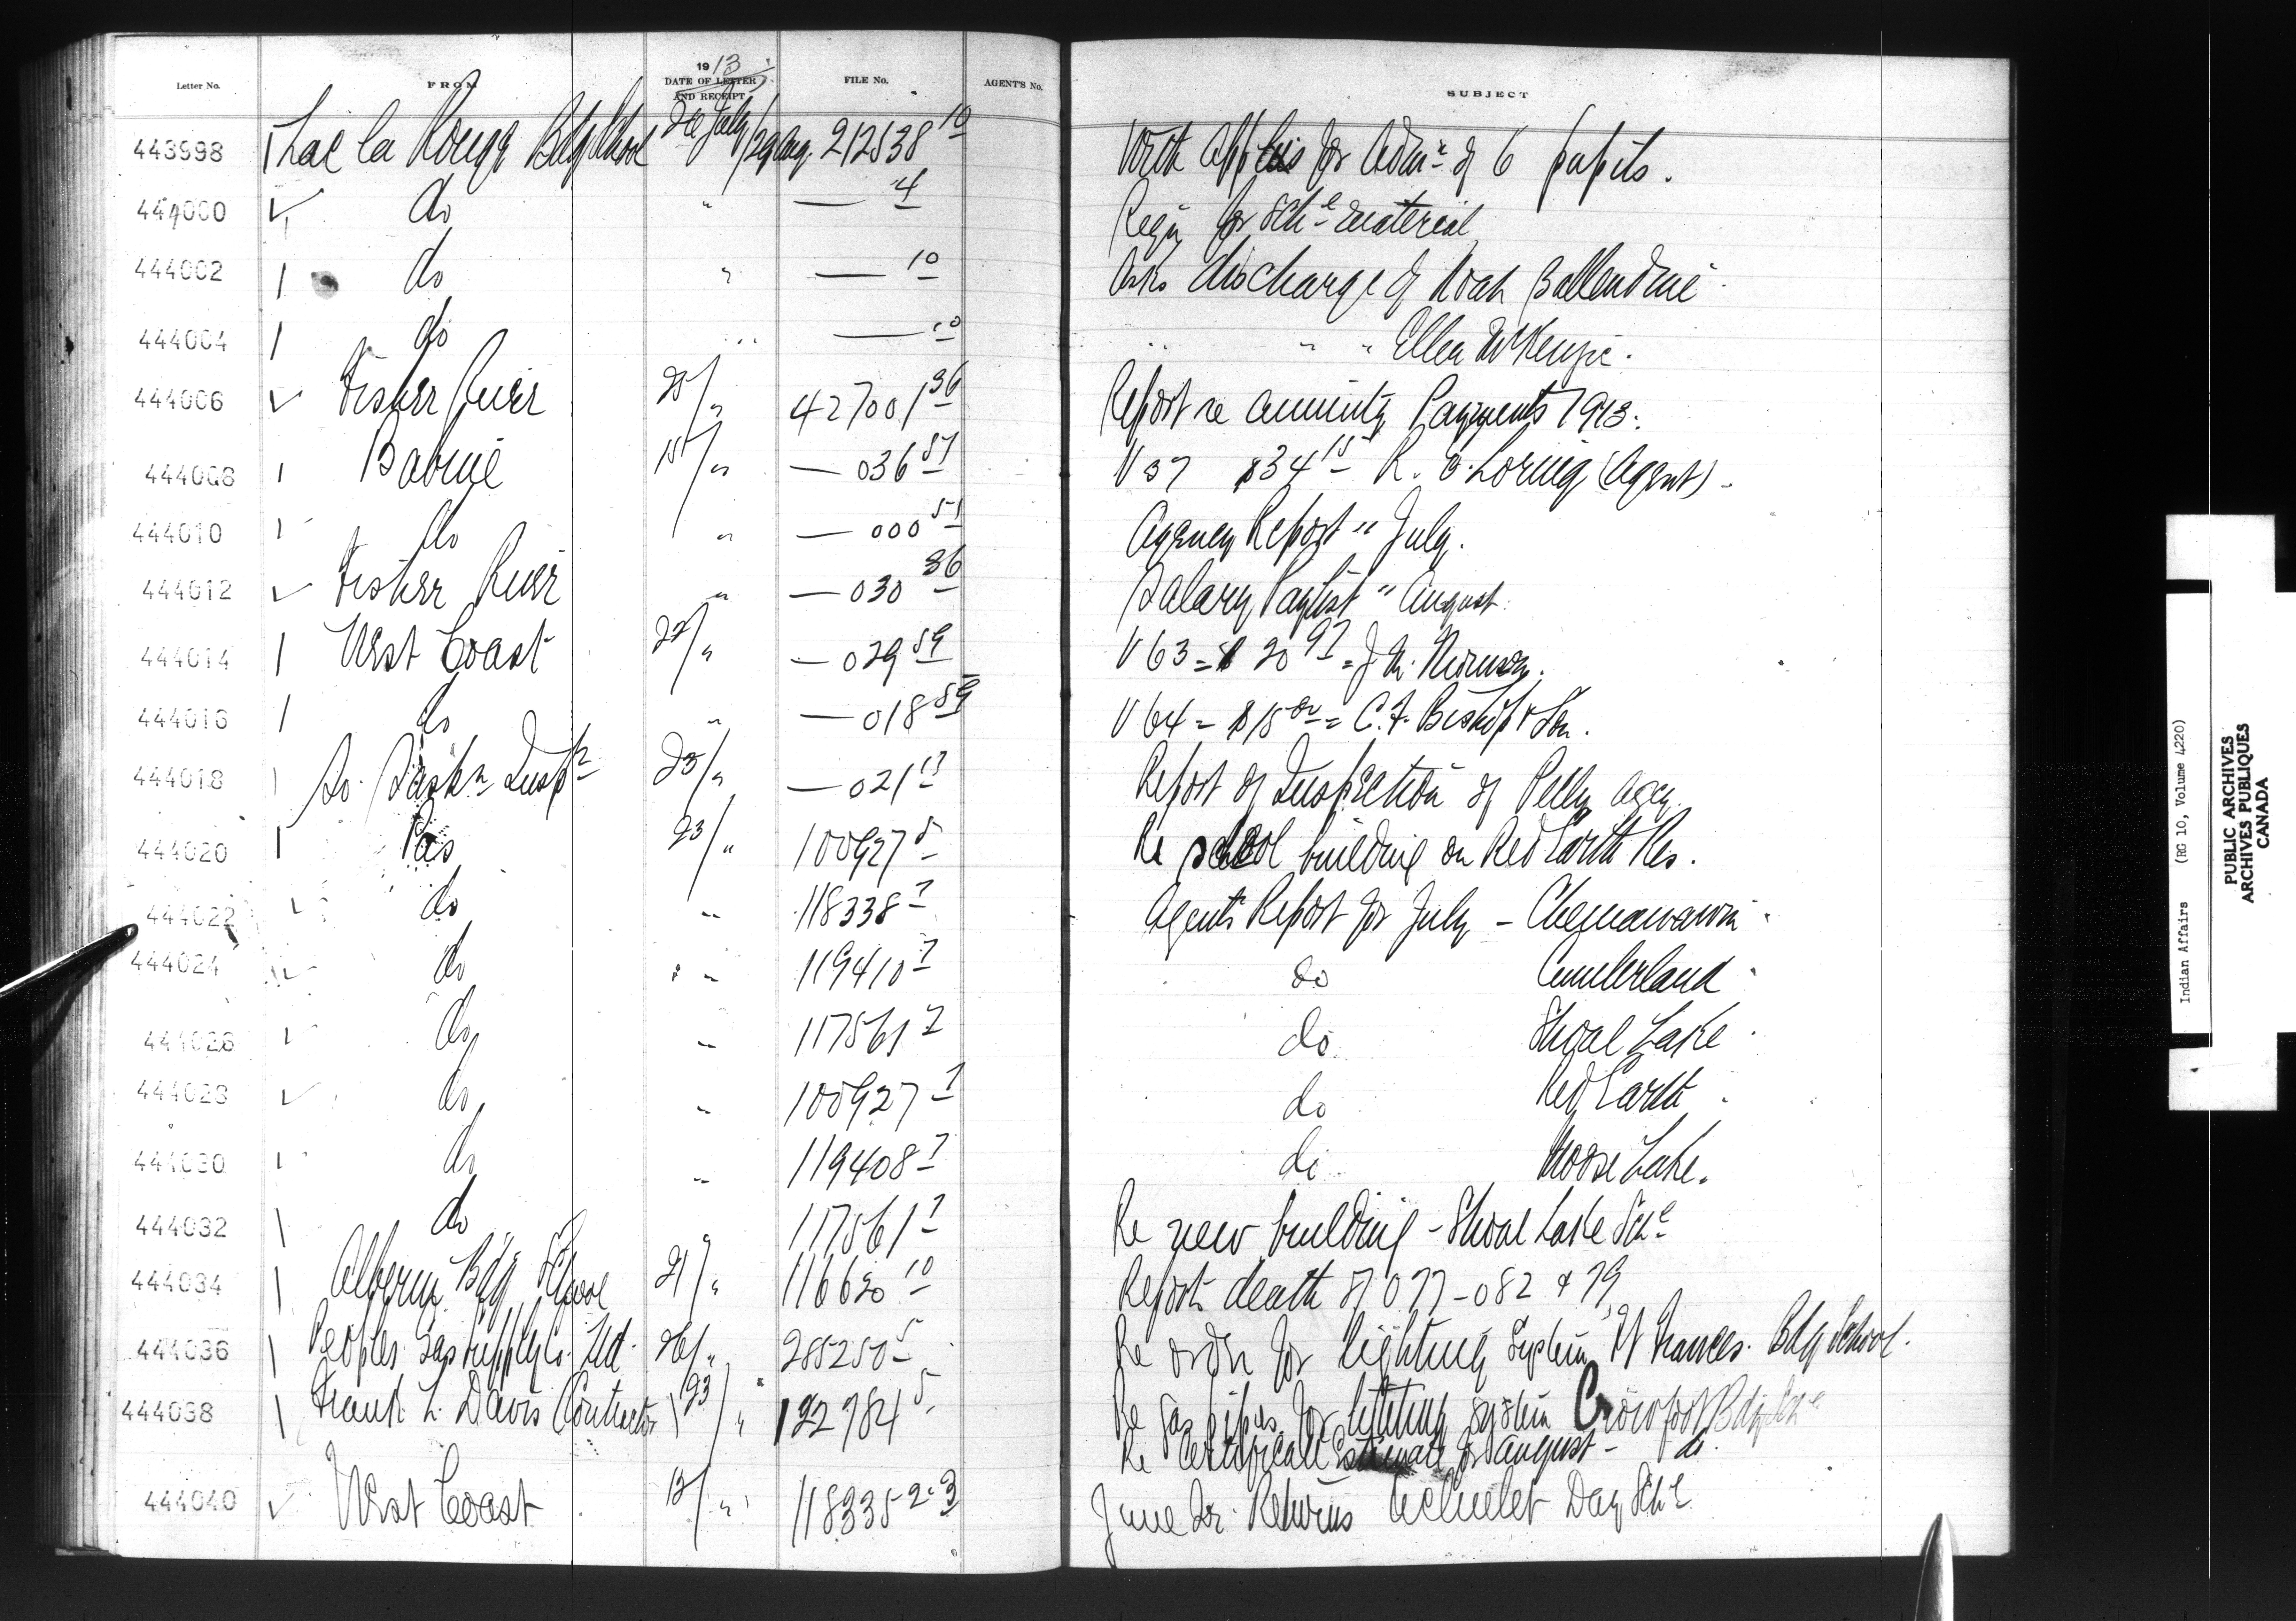 Letter No. FROM 1913 DATE OF LETTER AND RECEIPT FILE No. AGENT'S No. SUBJECT
443998 Lac la Ronge Bdg School 26 July/29 Aug. 212538 10 With applns for Admn of 6 pupils.
444000 do " — 4 Reqn for Schl material
444002 do " — 10 Asks discharge of Noah Ballendine
444004 do " — 10 " " " Ellen McKenzie.
444006 Fisher River 25/" 427001 36 Report re annuity Payments 1913.
444008 Babine 15/" — 036 57 V 37 $34 15 R. E. Loring (Agent)
444010 do " — 000 51 Agency Report " July.
444012 Fisher River " — 030 36 Salary Paylist " August
444014 West Coast 22/" — 029 59 V 63 = $20 97 =
444016 do " — 018 59 V 64 = $15 00 = C. F. Bishop & Son.
444018 So. Saskn Inspr 25/" — 021 13 Report of Inspection of Pelly Agcy
444020 Pas 23/" 100927 5 Re school building on Red Earth Res.
444022 do " 118338 7 Agent's Report for July - Chemawawin
444024 do " 119410 7 do Cumberland
444026 do " 117561 7 do Shoal Lake
444028 do " 100927 7 do Red Earth
444030 do " 119408 7 do Moose Lake.
444032 do " 117561 1 Re new building - Shoal Lake Schl
444034 Alberni Bdg School 21/" 116620 10 Reports death of 077 - 082 & 79
444036 Peoples Gas Supply Co. Ltd. 26/" 285250 5 Re order for lighting System Ft Frances Bdg School.
444038 Frank L. Davis Contractor 23/" 132784 5 Re gas pipes for lighting system Crowfoot Bdg Schl
Re certificate Estimate for August - do
444040 West Coast 13/" 118335 2.3 June Qr. Returns Ucluelet Day Schl
Indian Affairs (RG 10, Volume 4220)
PUBLIC ARCHIVES
ARCHIVES PUBLIQUES
CANADA